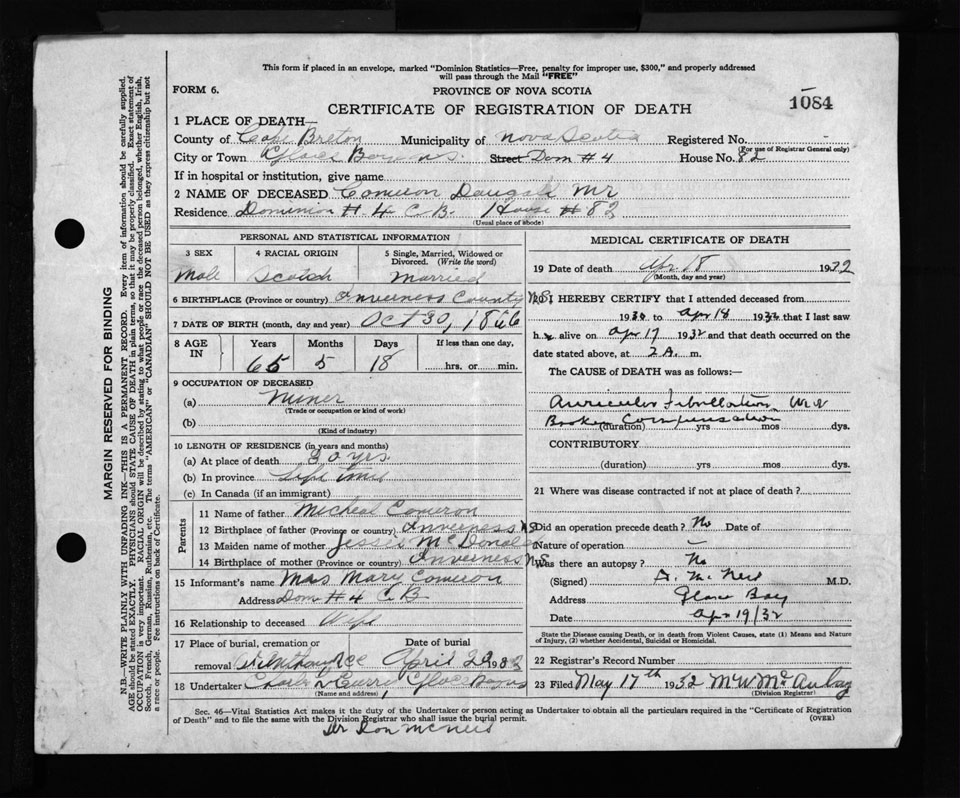 This form if placed in an envelope, marked "Dominion Statistics—Free, penalty for improper use, $300," and properly addressed
will pass through the Mail "FREE"
FORM 6.
PROVINCE OF NOVA SCOTIA
1084
CERTIFICATE OF REGISTRATION OF DEATH
1 PLACE OF DEATH—
County of Cape Breton Municipality of Nova Scotia Registered No.
(For use of Registrar General only)
City or Town Glace Bay N.S. Street Dom #4 House No. 82
If in hospital or institution, give name
2 NAME OF DECEASED Cameron Dougald Mr
Residence Dominion #4 C.B. House #82
(Usual place of abode)
PERSONAL AND STATISTICAL INFORMATION
3 SEX 4 RACIAL ORIGIN 5 Single, Married, Widowed or
Divorced. (Write the word)
Male Scotch Married
6 BIRTHPLACE (Province or country) Inverness County N.S.
7 DATE OF BIRTH (month, day and year) Oct 30, 1866
8 AGE IN Years Months Days If less than one day,
65 5 18 hrs. or min.
9 OCCUPATION OF DECEASED
(a) Miner
(Trade or occupation or kind of work)
(b)
(Kind of industry)
10 LENGTH OF RESIDENCE (in years and months)
(a) At place of death 30 yrs.
(b) In province Life time
(c) In Canada (if an immigrant)
Parents
11 Name of father Micheal Cameron
12 Birthplace of father (Province or country) Inverness N.S.
13 Maiden name of mother Jessie McDonald
14 Birthplace of mother (Province or country) Inverness N.S.
15 Informant's name Mrs Mary Cameron
Address Dom #4 C.B
16 Relationship to deceased Wife
17 Place of burial, cremation or Date of burial
removal April 193
18 Undertaker Glace Bay N.S
(Name and address)
MEDICAL CERTIFICATE OF DEATH
19 Date of death Apr 18 1932
(Month, day and year)
20 I HEREBY CERTIFY that I attended deceased from
1930 to Apr 18 1932 that I last saw
h alive on Apr 17 1932 and that death occurred on the
date stated above, at 2 A. m.
The CAUSE of DEATH was as follows:—
Auricular Fibrillation
Broken Compensation
(duration) yrs mos dys.
CONTRIBUTORY
(duration) yrs mos dys.
21 Where was disease contracted if not at place of death?
Did an operation precede death? No Date of
Nature of operation —
Was there an autopsy? No
(Signed) McNeil M.D.
Address Glace Bay
Date Apr 19/32
State the Disease causing Death, or in death from Violent Causes, state (1) Means and Nature
of Injury, (2) whether Accidental, Suicidal or Homicidal.
22 Registrar's Record Number
23 Filed May 17th 1932 McAulay
(Division Registrar)
Sec. 46—Vital Statistics Act makes it the duty of the Undertaker or person acting as Undertaker to obtain all the particulars required in the "Certificate of Registration
of Death" and to file the same with the Division Registrar who shall issue the burial permit.
(OVER)
Dr Dan McNeil
MARGIN RESERVED FOR BINDING
N.B.—WRITE PLAINLY WITH UNFADING INK—THIS IS A PERMANENT RECORD. Every item of information should be carefully supplied.
AGE should be stated EXACTLY. PHYSICIANS should STATE CAUSE OF DEATH in plain terms, so that it may be properly classified. Exact statement of
OCCUPATION is very important. RACIAL ORIGIN will be described by stating to what people or race the deceased person belonged, whether English, Irish,
Scotch, French, German, Russian, Ruthenian, etc. The terms "AMERICAN" or "CANADIAN" SHOULD NOT BE USED as they express citizenship but not
a race or people. See instructions on back of Certificate.